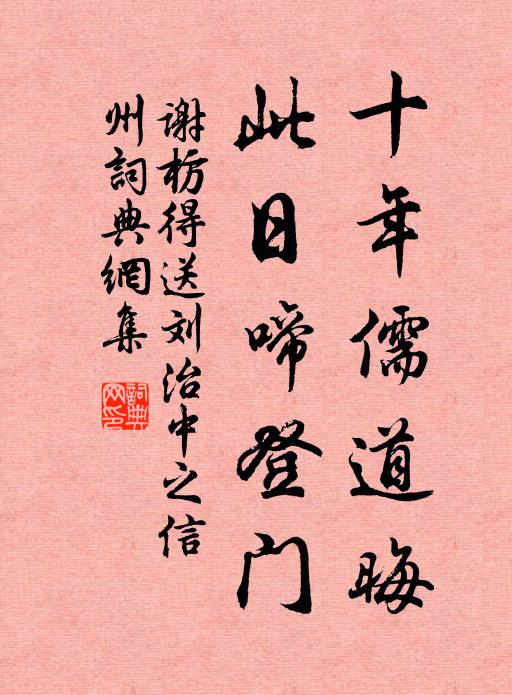 十年儒道晦
此日啼登门
谢枋得送刘治中之信
州词典網集
詞典網印